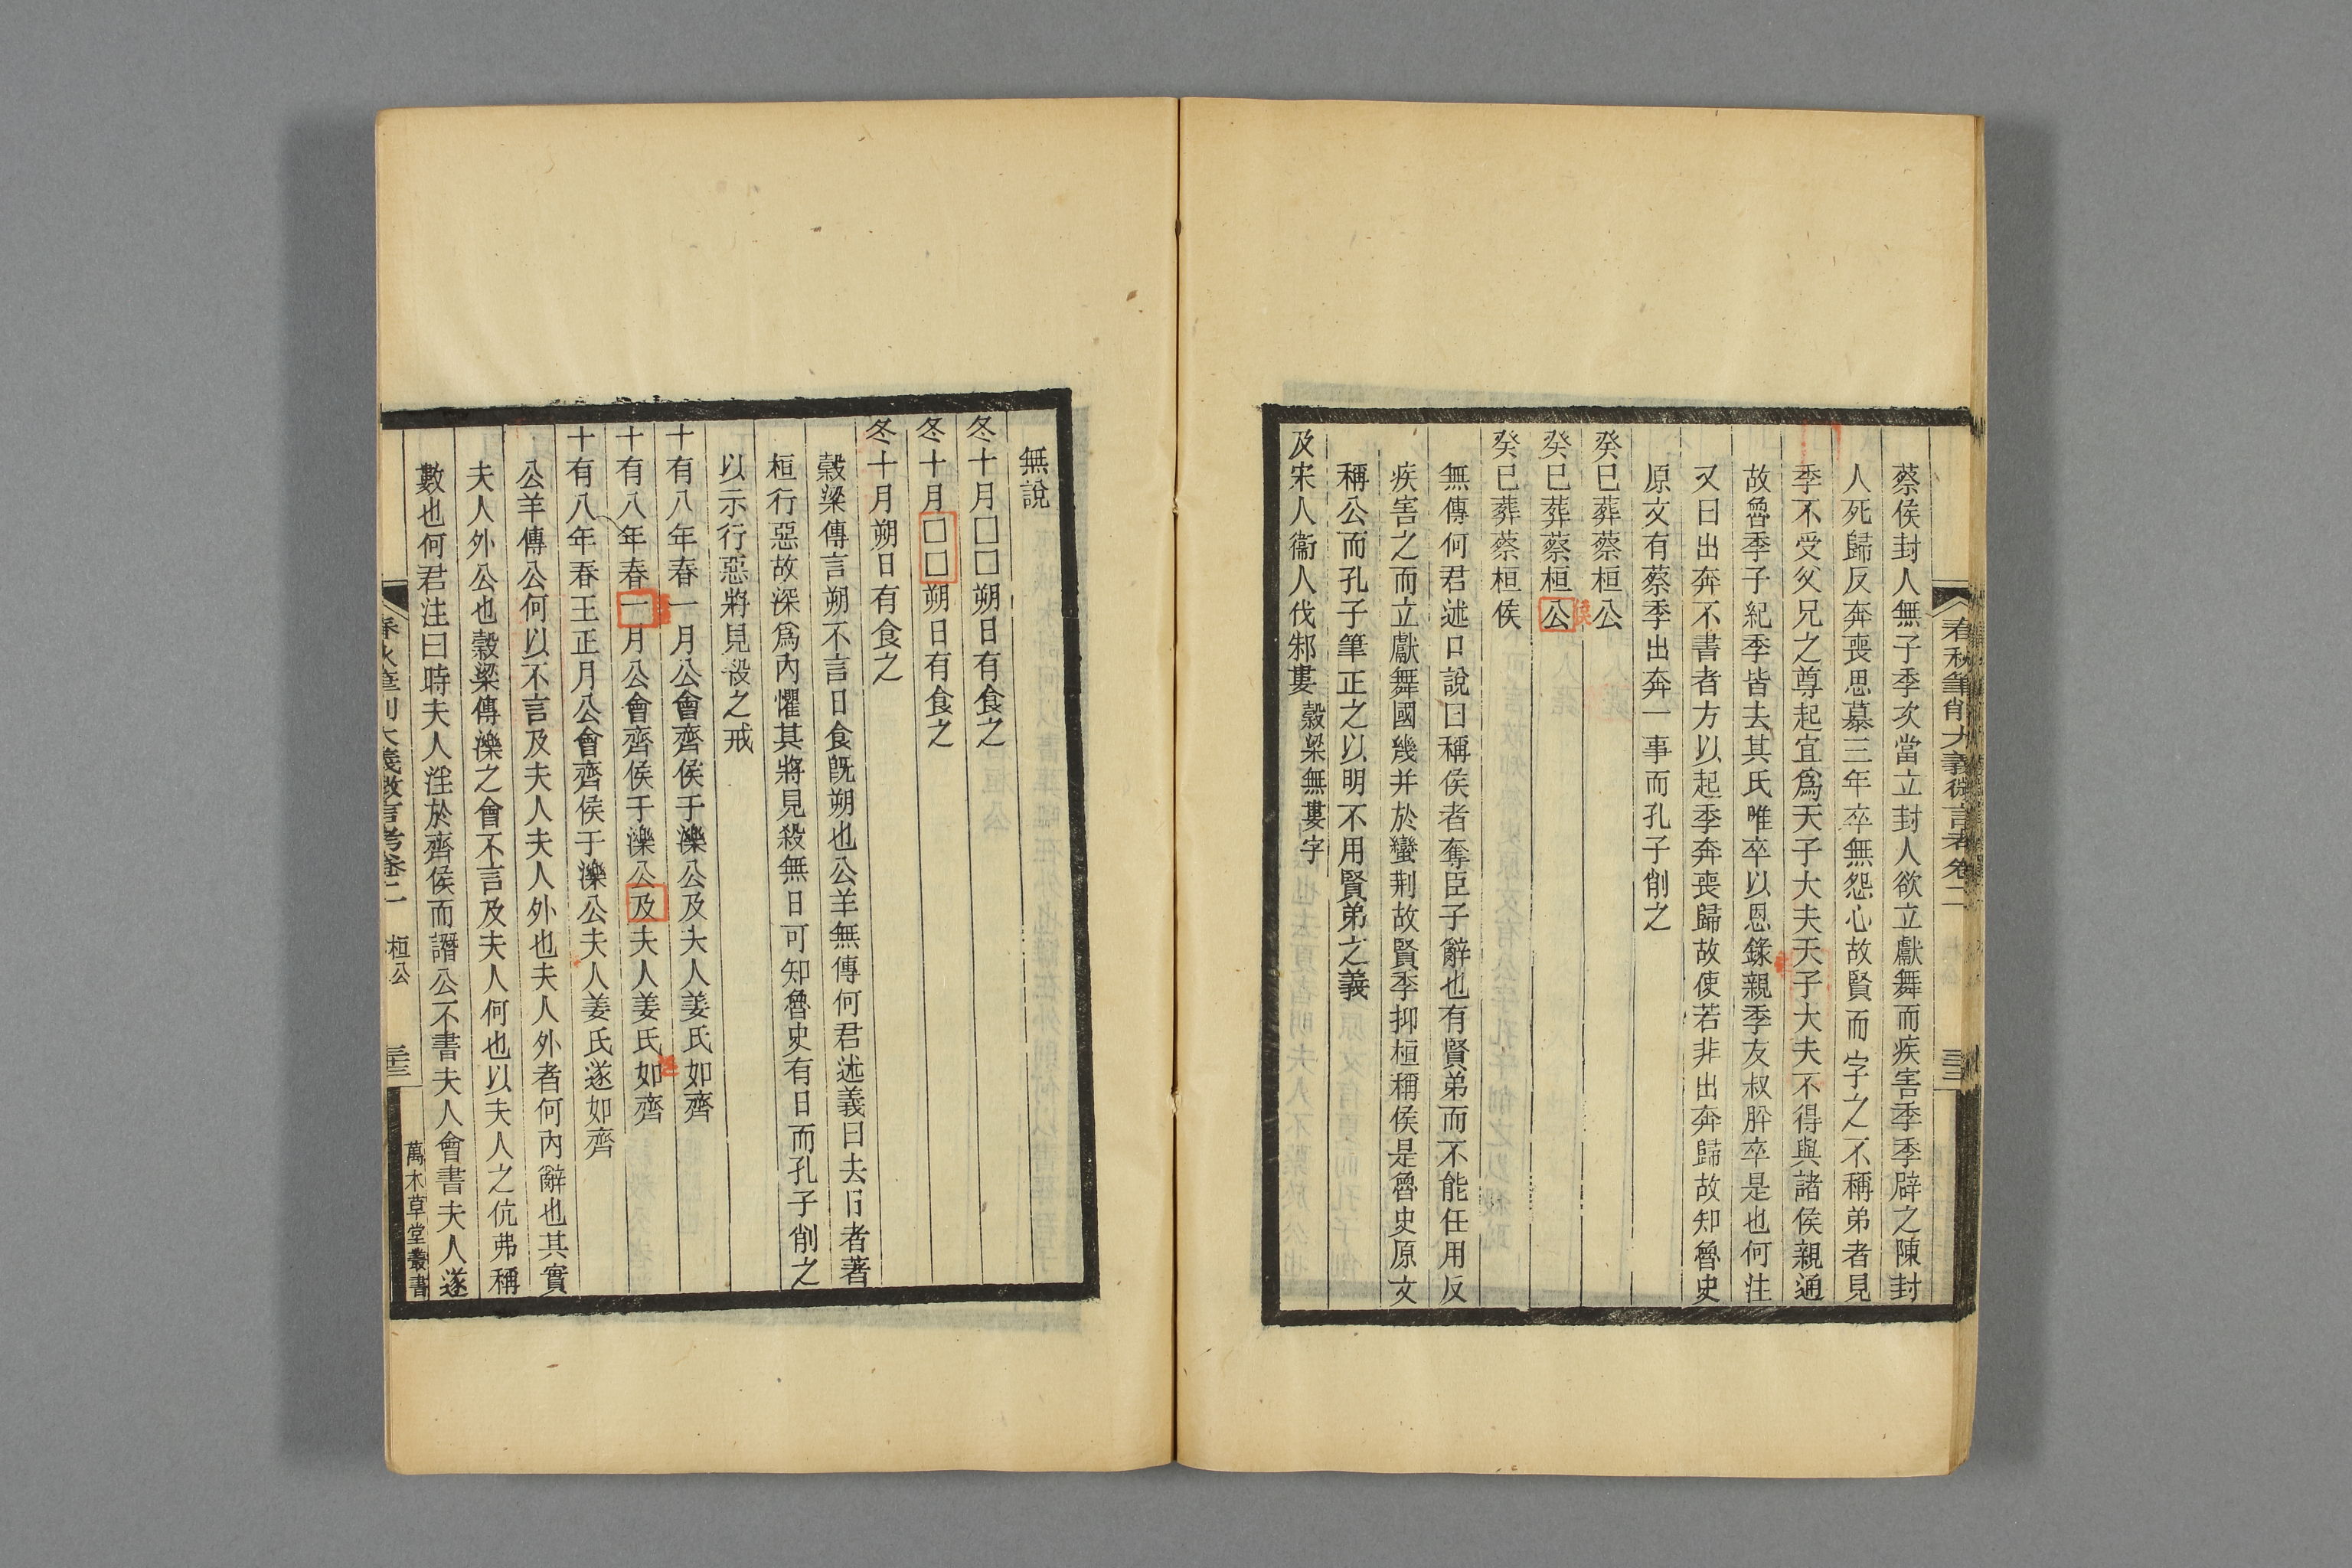 春秋筆削大義微言考卷二
三三
蔡侯封人無子季次當立封人欲立獻舞而疾害季季辟之陳封
人死歸反奔喪思慕三年卒無怨心故賢而字之不稱弟者見
季不受父兄之尊起宜爲天子大夫天子大夫不得與諸侯親通
故魯季子紀季皆去其氏唯卒以恩錄親季友叔肸卒是也何注
又曰出奔不書者方以起季奔喪歸故使若非出奔歸故知魯史
原文有蔡季出奔一事而孔子削之
癸巳葬蔡桓公
癸巳葬蔡桓公侯
癸巳葬蔡桓侯
無傳何君述口說曰稱侯者奪臣子辭也有賢弟而不能任用反
疾害之而立獻舞國幾并於蠻荆故賢季抑桓稱侯是魯史原文
稱公而孔子筆正之以明不用賢弟之義
及宋人衞人伐邾婁 穀梁無婁字
無說
冬十月□□朔日有食之
冬十月□□朔日有食之
冬十月朔日有食之
穀梁傳言朔不言日食旣朔也公羊無傳何君述義曰去日者著
桓行惡故深爲內懼其將見殺無日可知魯史有日而孔子削之
以示行惡將見殺之戒
十有八年春一月公會齊侯于濼公及夫人姜氏如齊
十有八年春一月公會齊侯于濼公及夫人姜氏如齊
十有八年春王正月公會齊侯于濼公夫人姜氏遂如齊
公羊傳公何以不言及夫人夫人外也夫人外者何內辭也其實
夫人外公也穀梁傳濼之會不言及夫人何也以夫人之伉弗稱
數也何君注曰時夫人淫於齊侯而譖公不書夫人會書夫人遂
春秋筆削大義微言考卷二 桓公
三三
萬木草堂叢書